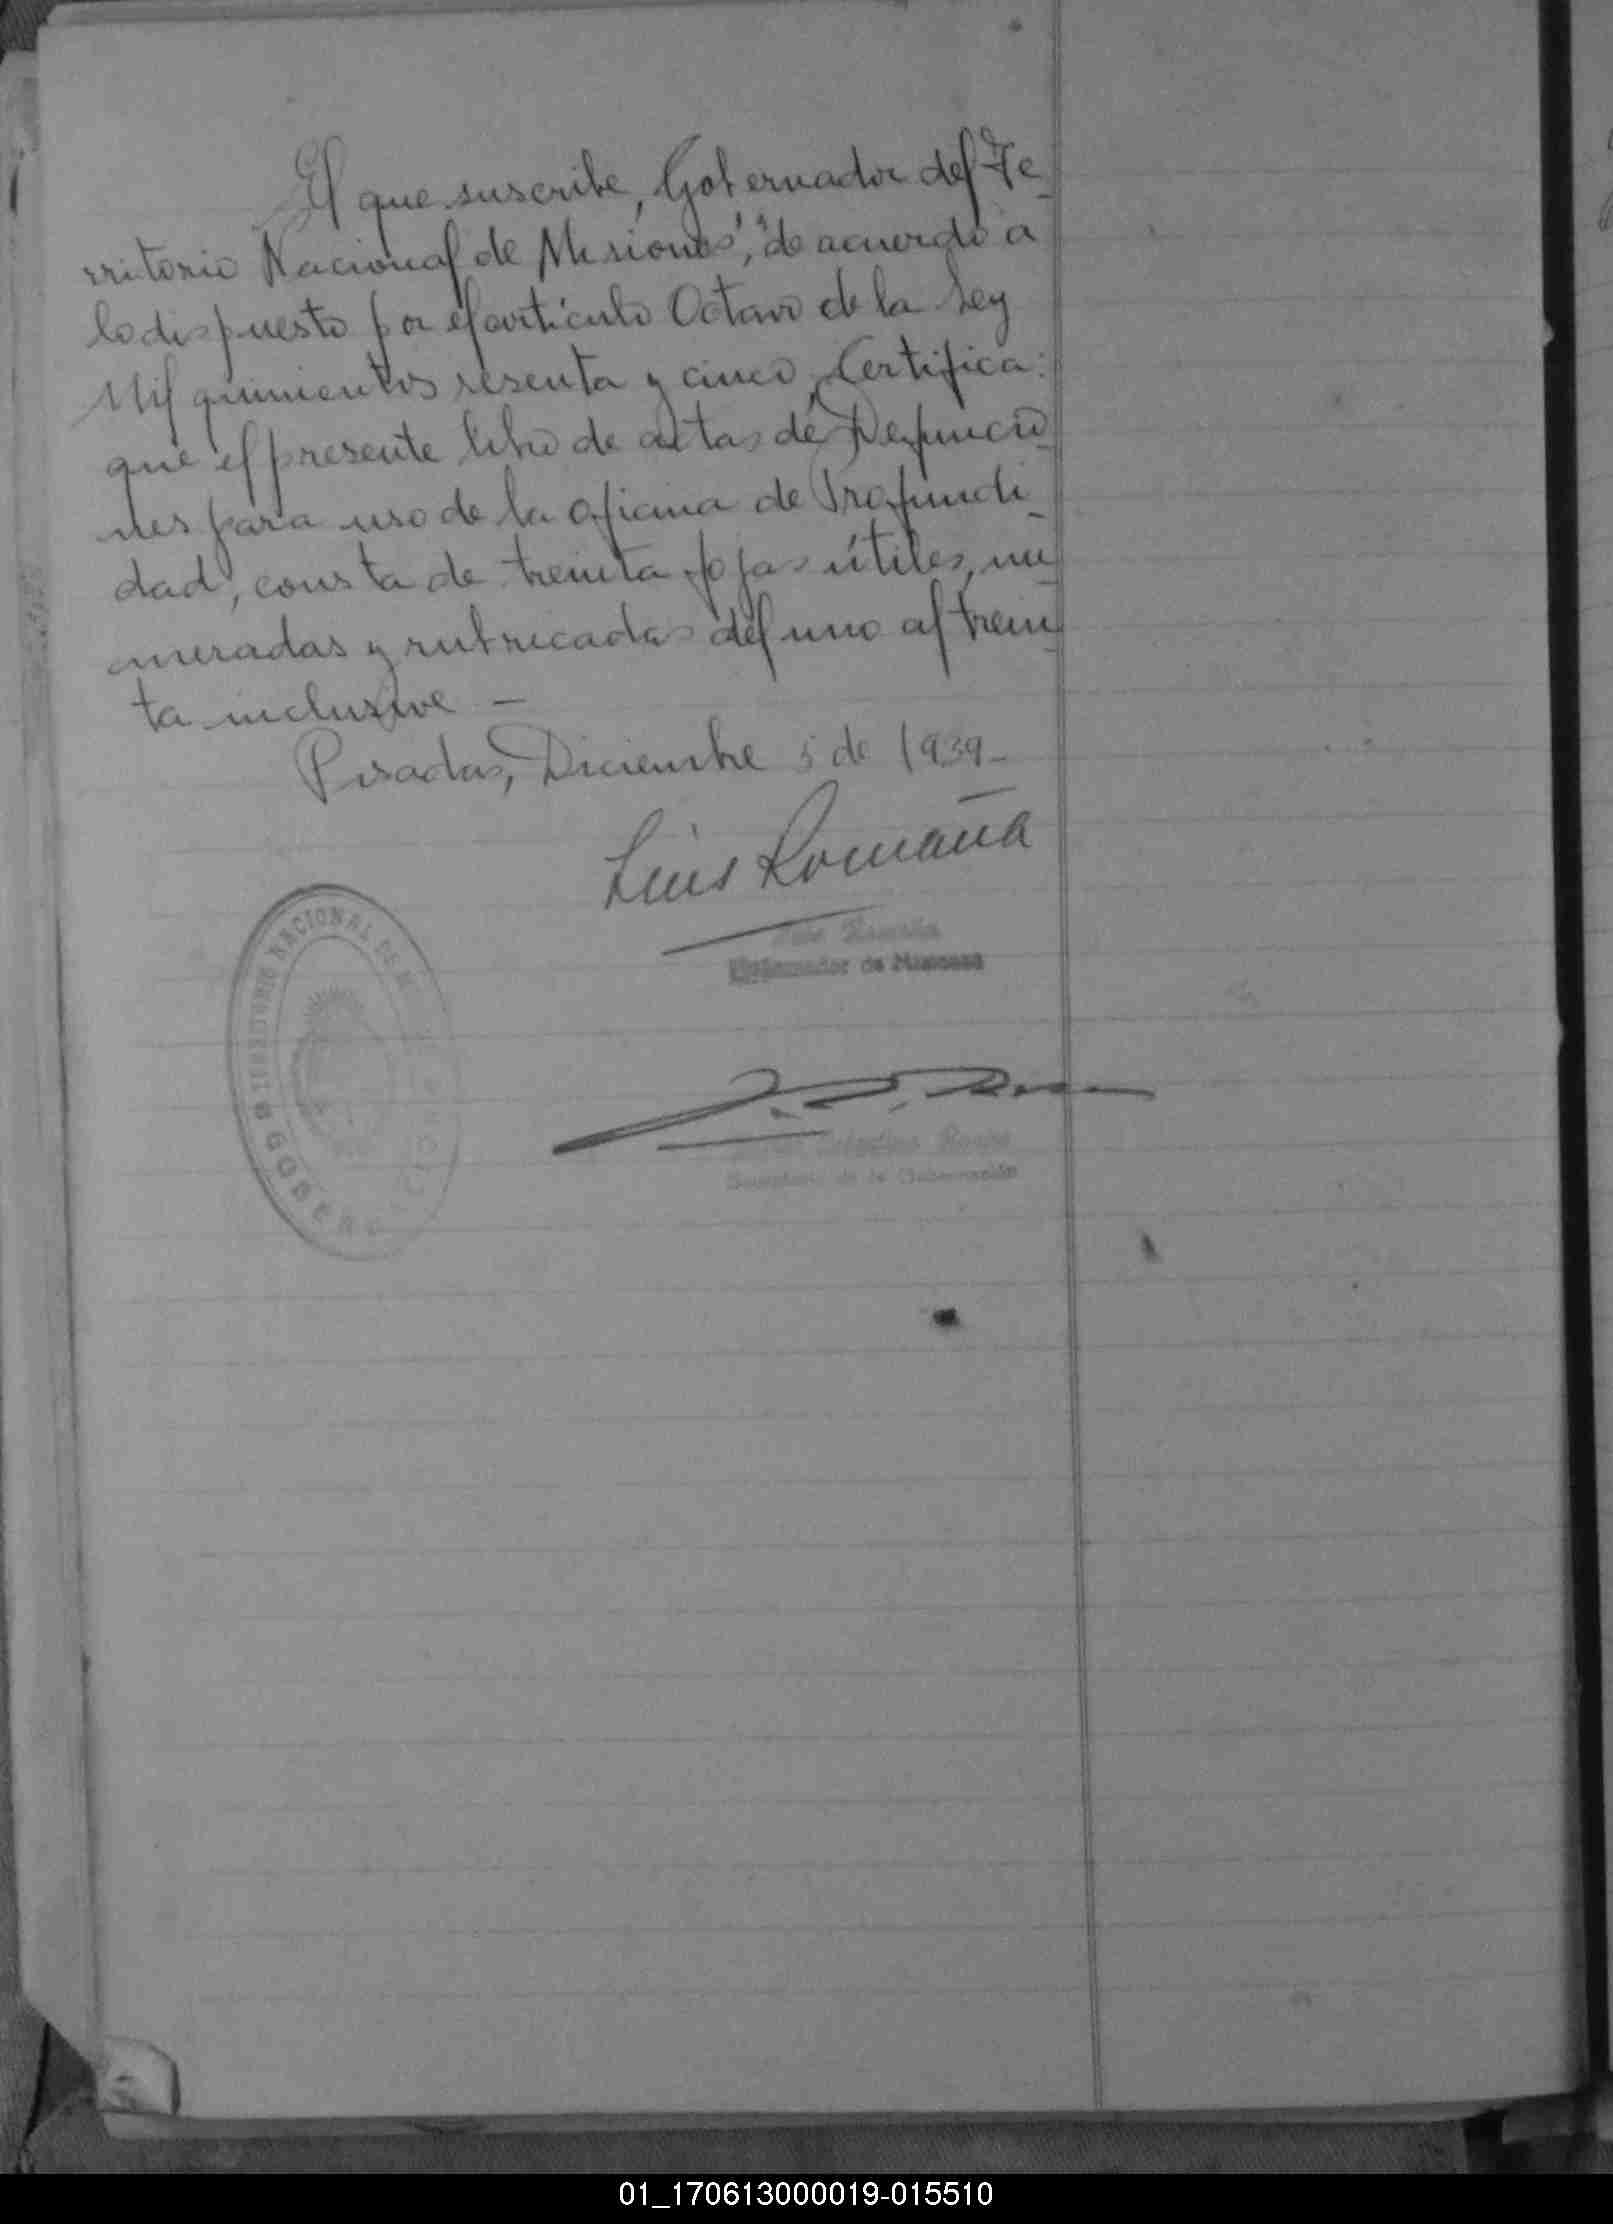 El que suscribe, Gobernador del Te-
rritorio Nacional de Misiones, de acuerdo a
lo dispuesto por el artículo Octavo de la Ley
Mil quinientos sesenta y cinco, Certifica:
que el presente libro de actas de Defuncio-
nes para uso de la oficina de Profundi-
dad, consta de treinta fojas útiles, nu-
meradas y rubricadas del uno al trein-
ta inclusive -
Posadas, Diciembre 5 de 1939-
Luis Romaña
Luis Romaña
Gobernador de Misiones
Secretario de la Gobernación
TERRITORIO NACIONAL DE M
GOBERNACION
01_170613000019-015510